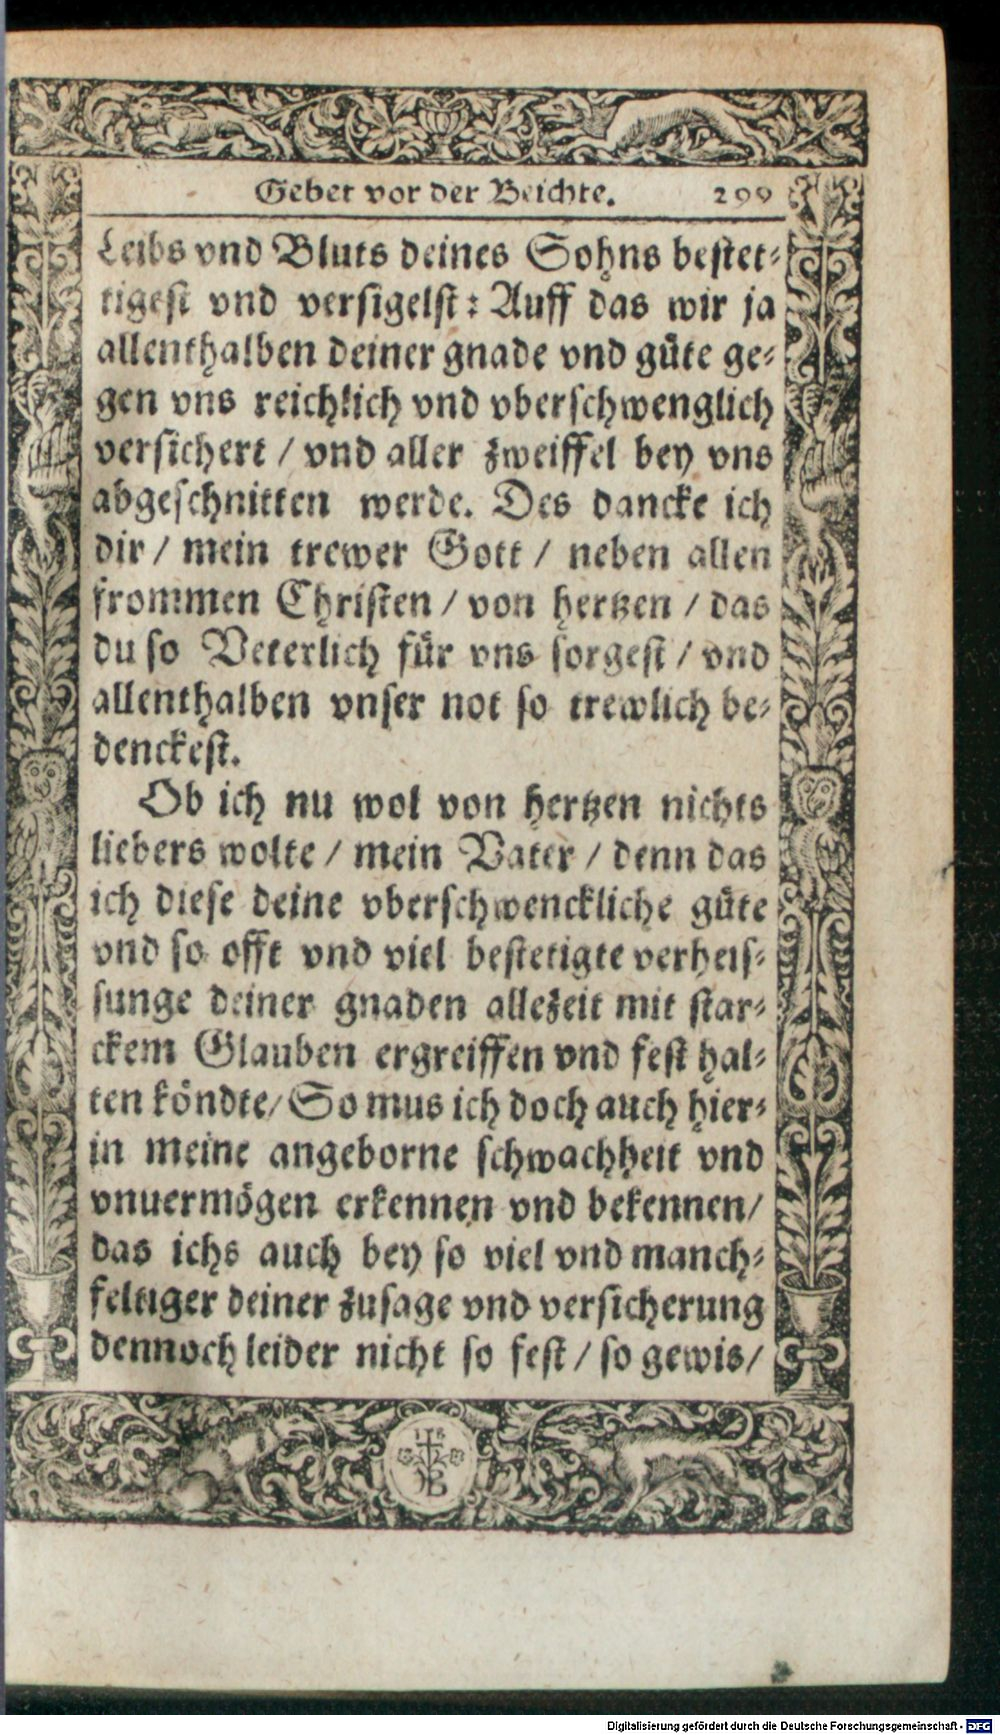 Gebet vor der Beichte. 299
Leibs vnd Bluts deines Sohns bestet-
tigest vnd versigelst: Auff das wir ja
allenthalben deiner gnade vnd güte ge-
gen vns reichlich vnd vberschwenglich
versichert / vnd aller zweiffel bey vns
abgeschnitten werde. Des dancke ich
dir / mein trewer Gott / neben allen
frommen Christen / von hertzen / das
du so Veterlich für vns sorgest / vnd
allenthalben vnser not so trewlich be-
denckest.
Ob ich nu wol von hertzen nichts
liebers wolte / mein Vater / denn das
ich diese deine vberschwenckliche güte
vnd so offt vnd viel bestetigte verheis-
sunge deiner gnaden allezeit mit star-
ckem Glauben ergreiffen vnd fest hal-
ten köndte / So mus ich doch auch hier-
in meine angeborne schwachheit vnd
vnuermögen erkennen vnd bekennen /
das ichs auch bey so viel vnd manch-
feltiger deiner zusage vnd versicherung
dennoch leider nicht so fest / so gewis /
Digitalisierung gefördert durch die Deutsche Forschungsgemeinschaft - DFG